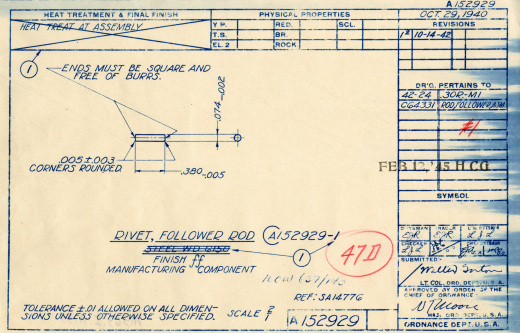 A152929
HEAT TREATMENT & FINAL FINISH
PHYSICAL PROPERTIES
OCT. 29, 1940
HEAT TREAT AT ASSEMBLY
Y P. RED. SCL.
T.S. BR.
EL. 2 ROCK.
REVISIONS
1 10-14-42
1
ENDS MUST BE SQUARE AND
FREE OF BURRS.
.074-.002
DR'G. PERTAINS TO
42-24 .30R-M1
C64331 ROD, FOLLOWER, ASM
#1
.005±.003
CORNERS ROUNDED
.380-.005
FEB 12, '45 H.C.G
SYMBOL
RIVET, FOLLOWER ROD A152929-1
FINISH ff
MANUFACTURING COMPONENT
47D
SUBMITTED
LT. COL. ORD. DEPT. U. S. A.
APPROVED BY ORDER OF THE
CHIEF OF ORDNANCE.
MAJ. ORD. DEPT. U. S. A.
REF: SA1477G
TOLERANCE ±.01 ALLOWED ON ALL DIMEN-
SIONS UNLESS OTHERWISE SPECIFIED.
SCALE
A152929
ORDNANCE DEPT. U. S. A.